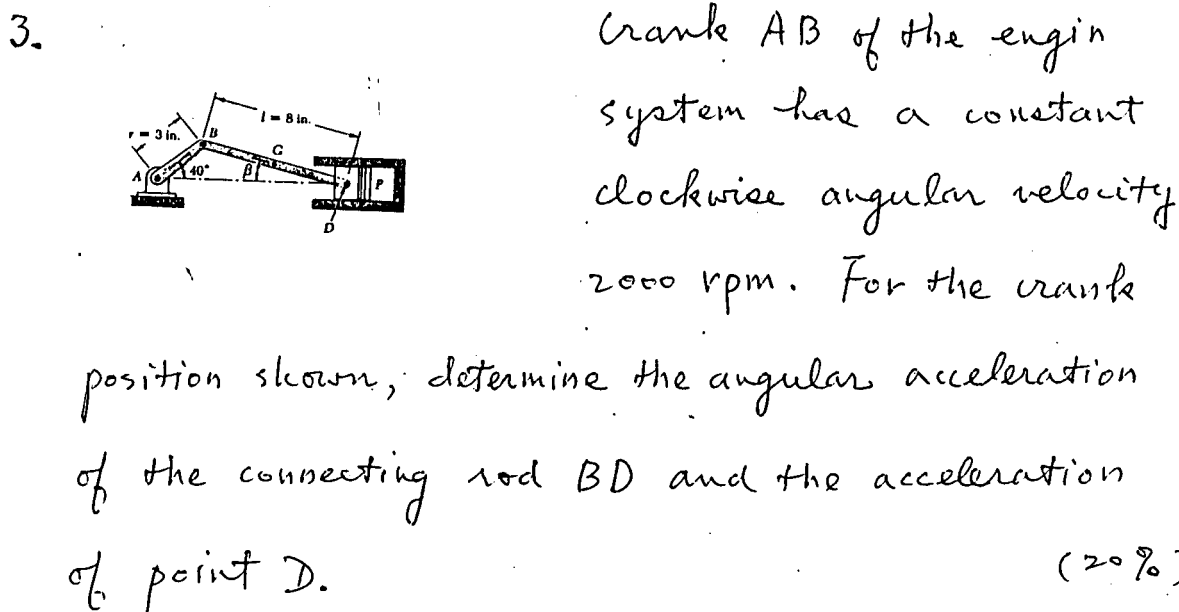 3.
Crank AB of the engin
system has a constant
clockwise angular velocity
2000 rpm. For the crank
position shown, determine the angular acceleration
of the connecting rod BD and the acceleration
of point D.
(20%)
l = 8 in.
r = 3 in.
B
G
A
40°
β
P
D